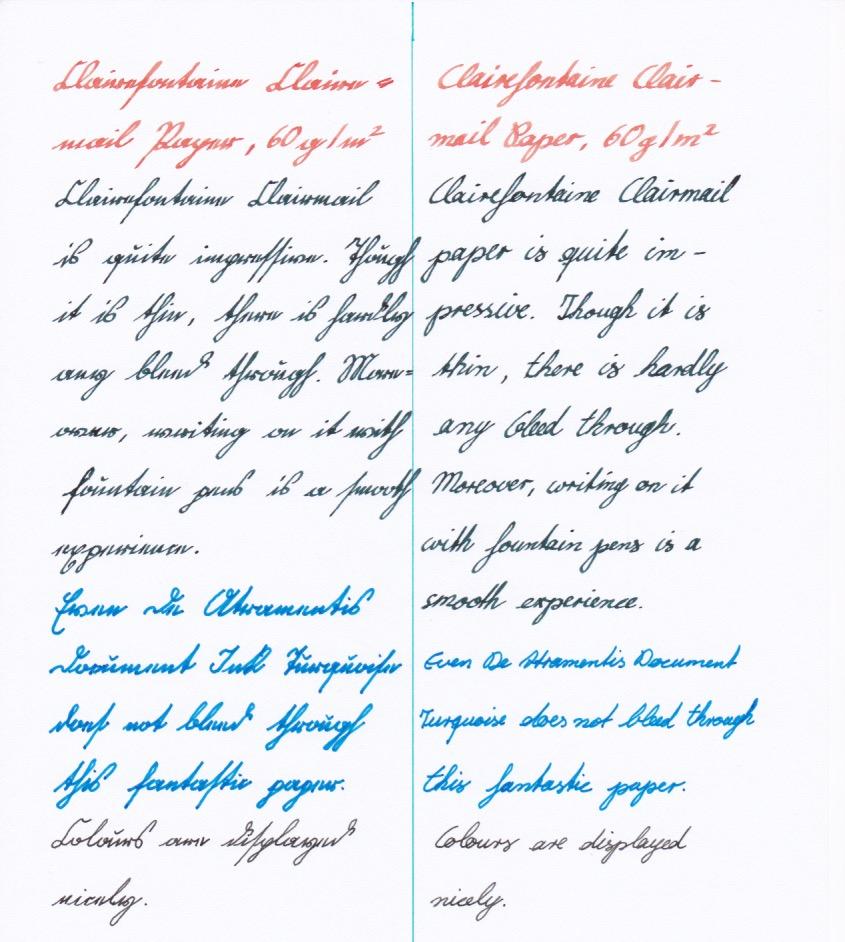 Clairefontaine Claire=
mail Paper, 60g/m²
Clairefontaine Clairmail
is quite impressive. Though
it is thin, there is hardly
any bleed through. More=
over, writing on it with
fountain pens is a smooth
experience.
Even De Atramentis
Document Ink Turquoise
does not bleed through
this fantastic paper.
Colours are displayed
nicely.
Clairefontaine Clair-
mail Paper, 60g/m²
Clairefontaine Clairmail
paper is quite im-
pressive. Though it is
thin, there is hardly
any bleed through.
Moreover, writing on it
with fountain pens is a
smooth experience.
Even De Atramentis Document
Turquoise does not bleed through
this fantastic paper.
Colours are displayed
nicely.